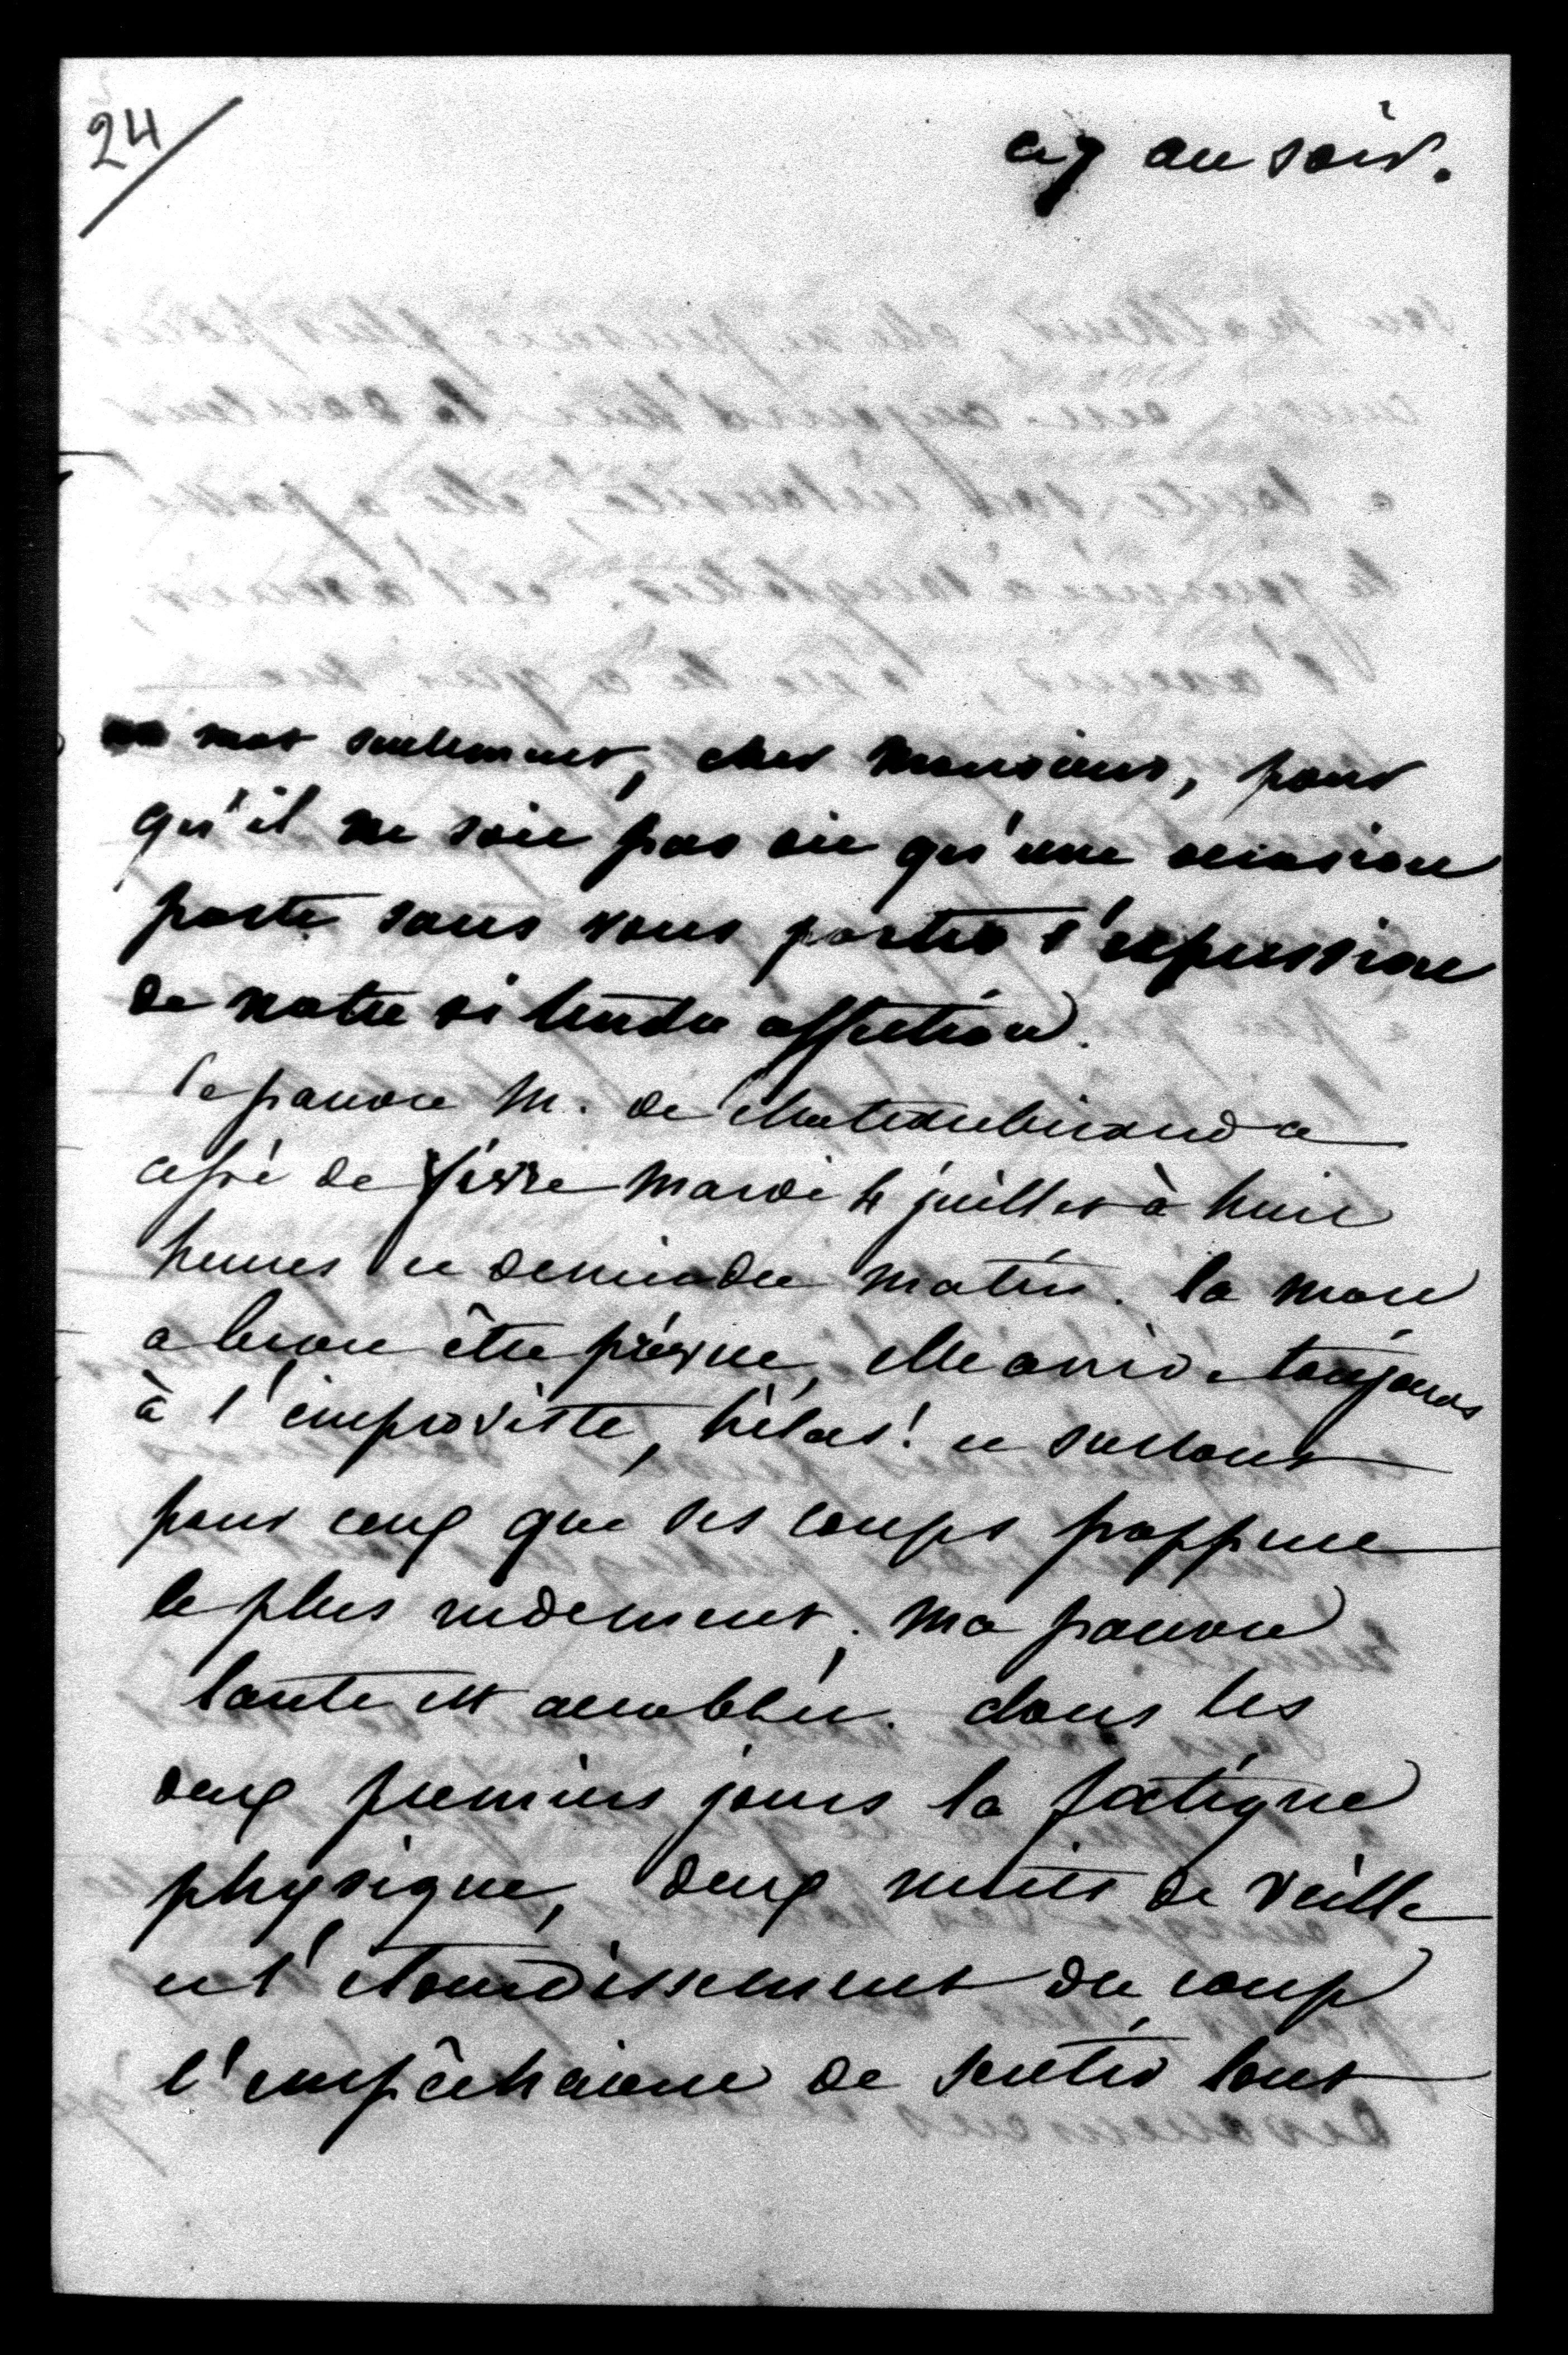 24
ce 7 au soir.
un mot seulement, cher Monsieur, pour
qu'il ne soit pas dit qu'une occasion
parte sans vous porter l'expression
de notre si tendre affection.
le pauvre M. de Chateaubriand a
cessé de vivre mardi 4 juillet à huit
heures et demie du matin. la mort
a beau être prévue, elle arrive toujours
à l'improviste, hélas! et surtout
pour ceux que ses coups frappent
le plus rudement. ma pauvre
tante est accablée. dans les
deux premiers jours la fatigue
physique, deux nuits de veille
et l'étourdissement du coup
l'empêchaient de sentir tout